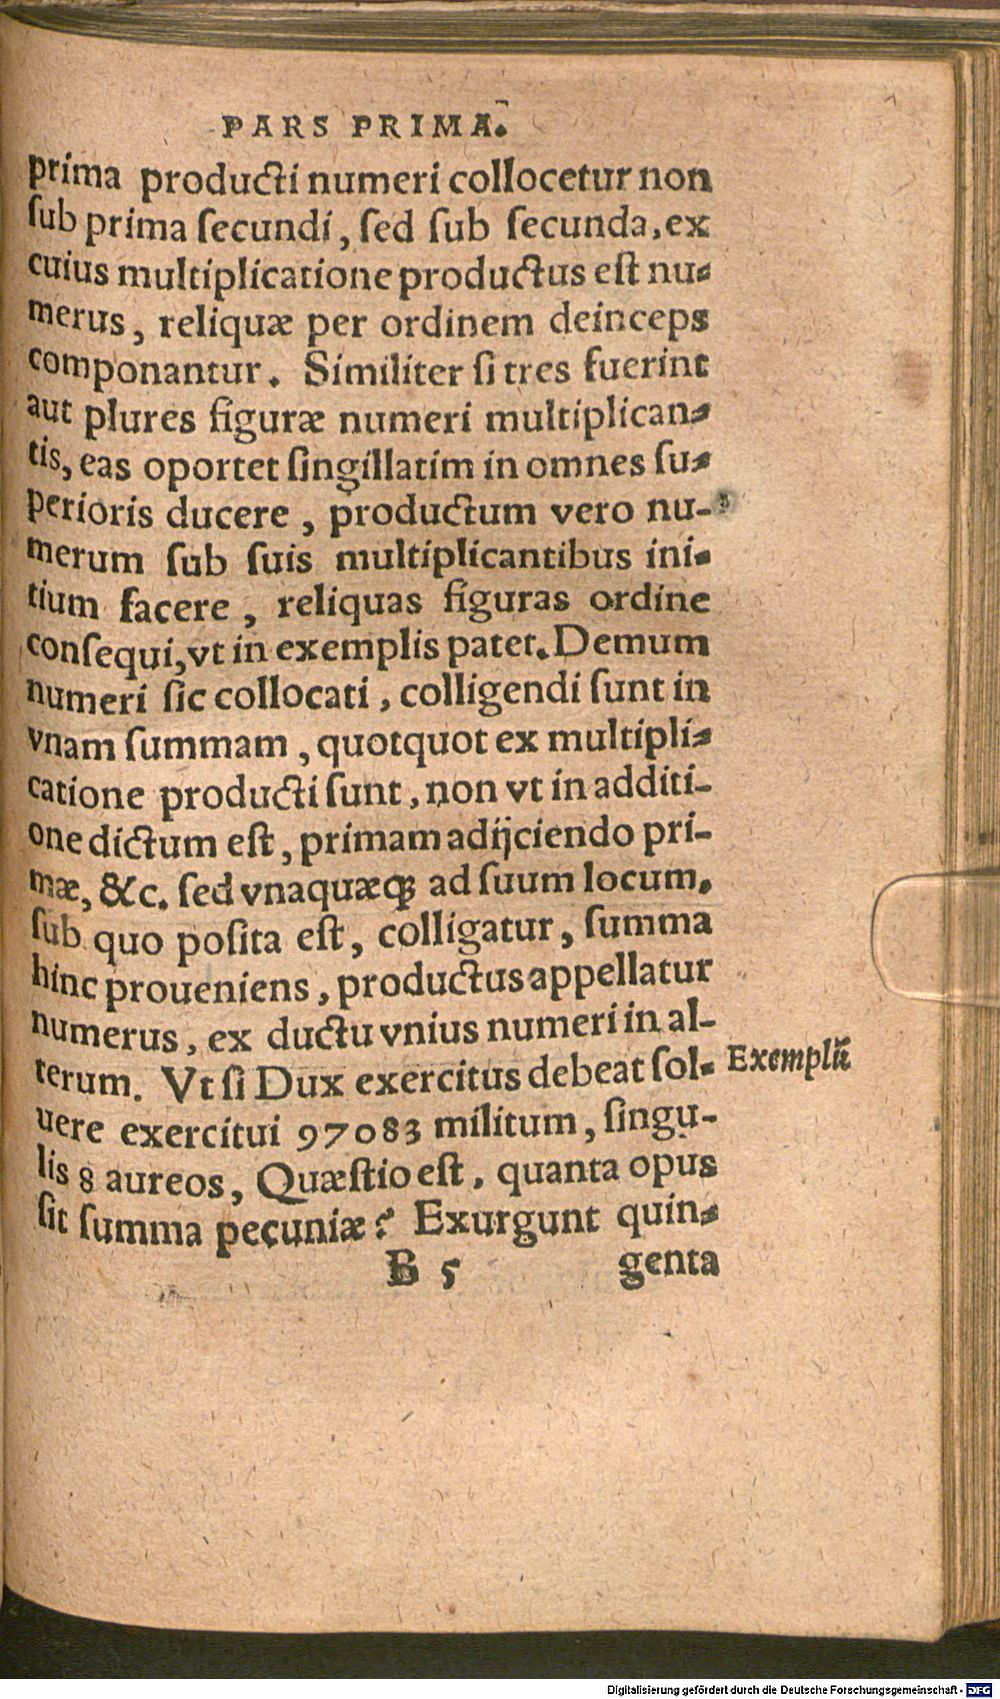 PARS PRIMA.
prima producti numeri collocetur non
ſub prima ſecundi, ſed ſub ſecunda, ex
cuius multiplicatione productus eſt nu-
merus, reliquæ per ordinem deinceps
componantur. Similiter ſi tres fuerint
aut plures figuræ numeri multiplican-
tis, eas oportet ſingillatim in omnes ſu-
perioris ducere, productum vero nu-
merum ſub ſuis multiplicantibus ini-
tium facere, reliquas figuras ordine
conſequi, vt in exemplis patet. Demum
numeri ſic collocati, colligendi ſunt in
vnam ſummam, quotquot ex multipli-
catione producti ſunt, non vt in additi-
one dictum eſt, primam adijciendo pri-
mæ, &c. ſed vnaquæq; ad ſuum locum,
ſub quo poſita eſt, colligatur, ſumma
hinc proueniens, productus appellatur
numerus, ex ductu vnius numeri in al-
terum. Vt ſi Dux exercitus debeat ſol-
Exemplũ
uere exercitui 97083 militum, ſingu-
lis 8 aureos, Quæſtio eſt, quanta opus
ſit ſumma pecuniæ? Exurgunt quin-
B 5 genta
Digitalisierung gefördert durch die Deutsche Forschungsgemeinschaft - DFG